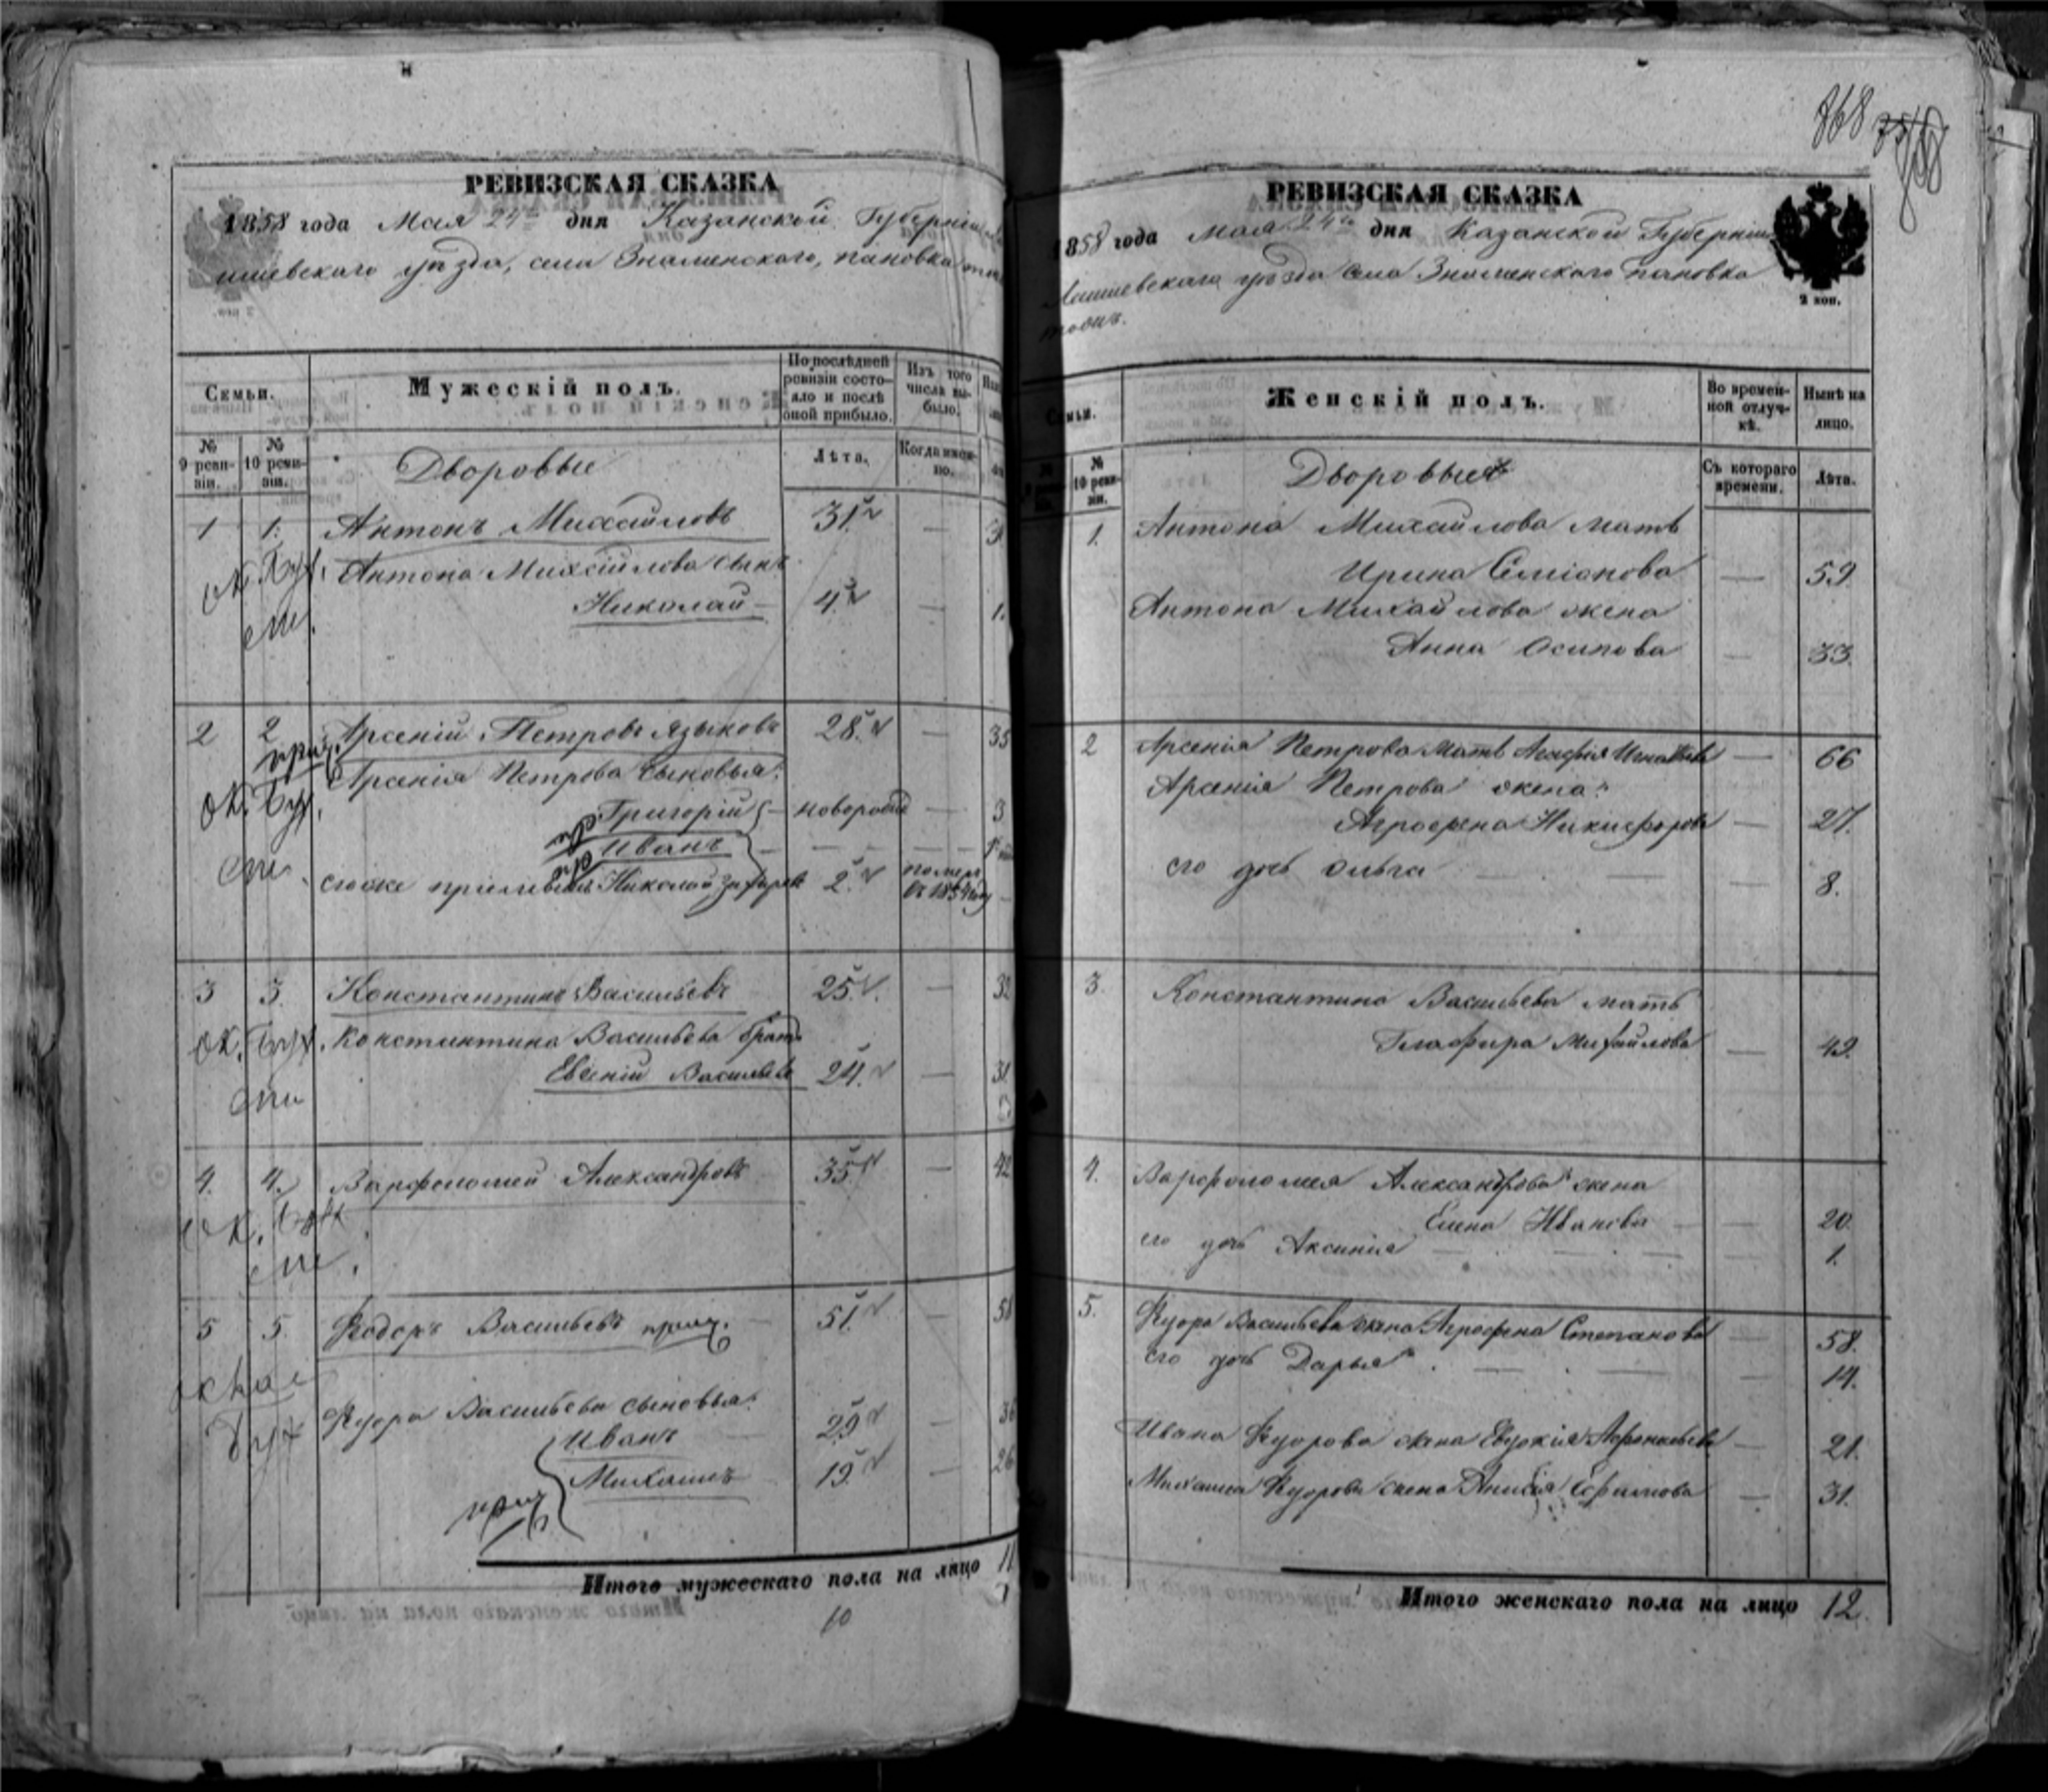 РЕВИЗСКАЯ СКАЗКА
1858 года Мая 24го дня Казанской Губерніи
ишевскаго уѣзда, села Знаменскаго, Пановка
Семьи.
Мужескій полъ.
По послѣдней ревизіи состояло и послѣ оной прибыло.
Изъ того числа выбыло.
№ 9 ревизіи.
№ 10 ревизіи.
Дворовые
Лѣта.
Когда именно.
1 1. Антонъ Михайловъ 31. —
Антона Михайлова сынъ
Николай — 4. — 1.
2 2 Арсеній Петровъ Языковъ 28. — 35
Арсенія Петрова сыновья:
Григорій — новорожд — 3
Иванъ — — —
его же Николай 2. помер. въ 1854 году
3 3. Константинъ Васильевъ 25. — 32
Константина Васильева братъ
Евгеній Васильевъ 24. — 31
4. 4. Варфоломей Александровъ 35. — 42
5 5. Ѳедоръ Васильевъ 51. — 58
Ѳедора Васильева сыновья:
Иванъ 29 — 36
Михаилъ 19. — 26
Итого мужескаго пола на лицо 11
10
868
РЕВИЗСКАЯ СКАЗКА
1858 года Мая 24го дня Казанской Губерніи
Лаишевскаго уѣзда села Знаменскаго Пановка
тожъ.
2 коп.
Семьи.
Женскій полъ.
Во временной отлучкѣ.
Нынѣ на лицо.
№ 10 ревизіи.
Дворовыя
Съ котораго времени.
Лѣта.
1. Антона Михайлова мать
Ирина Семіонова — 59.
Антона Михайлова жена
Анна Осипова — 33.
2 Арсенія Петрова мать Агафія Игнатьева — 66
Арсенія Петрова жена:
Агрофена Никифорова — 27.
его дочь Ольга — — — 8.
3. Константина Васильева мать
Глафира Михайлова — 49.
4. Варфоломея Александрова жена
Елена Иванова — — 20.
его дочь Аксинія — — — 1.
5. Ѳедора Васильева жена Агрофена Степанова — 58.
его дочь Дарья — — — 14.
Ивана Ѳедорова жена Евдокія Афонасьева — 21.
Михаила Ѳедорова жена Анисія Ефимова — 31.
Итого женскаго пола на лицо 12.